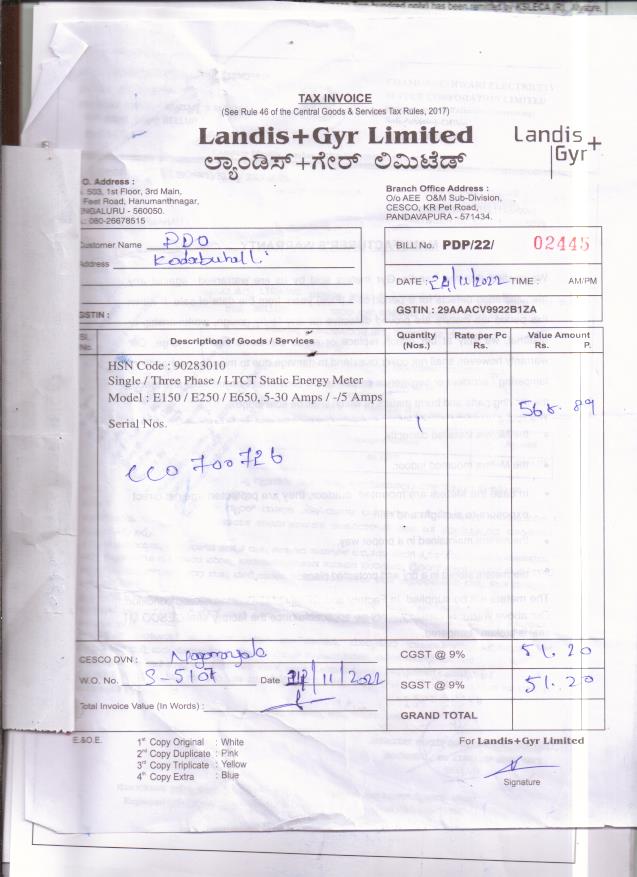 TAX INVOICE
(See Rule 46 of the Central Goods & Services Tax Rules, 2017)
Landis+Gyr Limited
ಲ್ಯಾಂಡಿಸ್+ಗೇರ್ ಲಿಮಿಟೆಡ್
Landis+
Gyr
O. Address :
503, 1st Floor, 3rd Main,
Feet Road, Hanumanthnagar,
NGALURU - 560050.
080-26678515
Branch Office Address :
O/o AEE O&M Sub-Division,
CESCO, KR Pet Road,
PANDAVAPURA - 571434.
Customer Name PDO
Address
BILL No. PDP/22/ 02445
DATE : 24/11/2022 TIME : AM/PM
GSTIN :
GSTIN : 29AAACV9922B1ZA
No. Description of Goods / Services Quantity (Nos.) Rate per Pc Rs. Value Amount Rs. P.
HSN Code : 90283010
Single / Three Phase / LTCT Static Energy Meter
Model : E150 / E250 / E650, 5-30 Amps / -/5 Amps
1 568.89
Serial Nos.
CCO 700726
CESCO DVN :
CGST @ 9% 51.20
W.O. No. Date /11/2022
SGST @ 9% 51.20
Total Invoice Value (In Words) :
GRAND TOTAL
E.&O.E.
1st Copy Original : White
2nd Copy Duplicate : Pink
3rd Copy Triplicate : Yellow
4th Copy Extra : Blue
For Landis+Gyr Limited
Signature